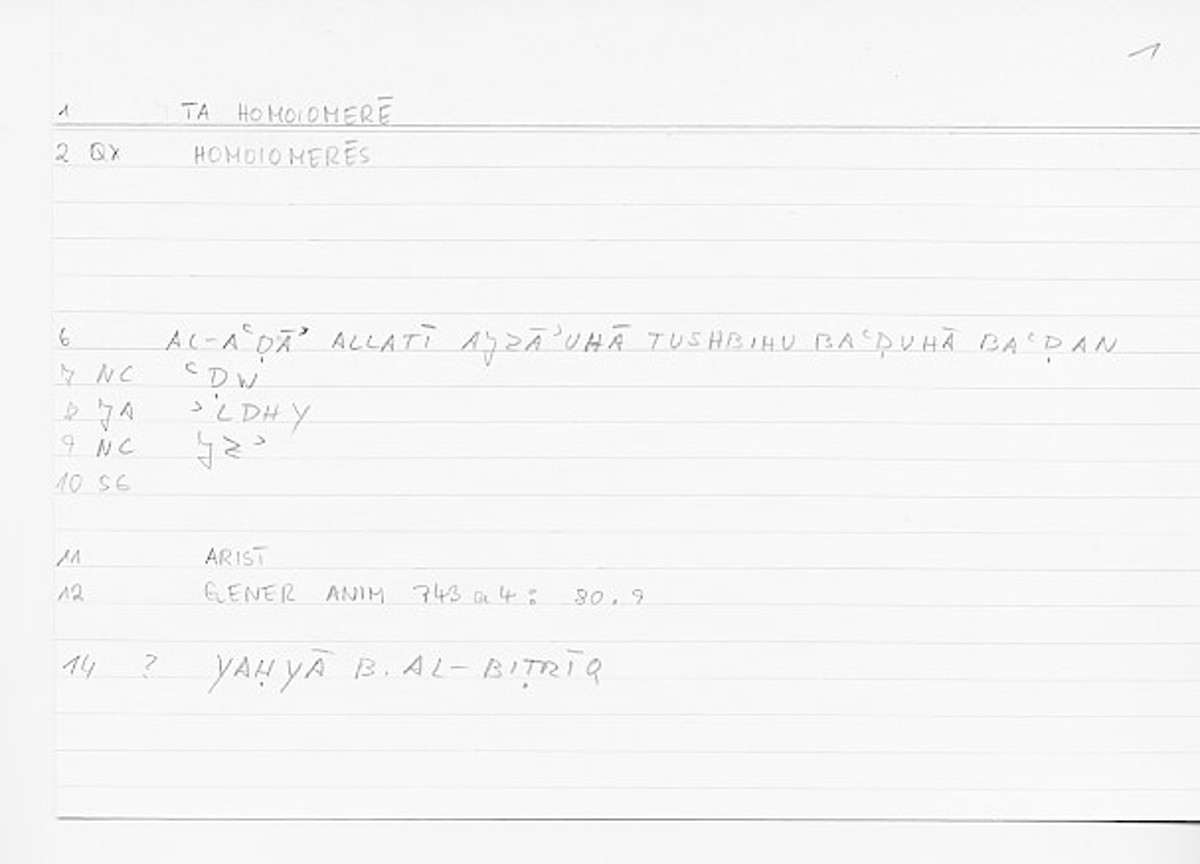 1
1 TA HOMOIOMERĒ
2 QX HOMOIOMERĒS
6 AL-AʿḌĀʾ ALLATĪ AJZĀʾUHĀ TUSHBIHU BAʿḌUHĀ BAʿḌAN
7 NC ʿḌW
8 JA ʾLDHY
9 NC JZʾ
10 SG
11 ARIST
12 GENER ANIM 743 a 4 : 80.9
14 ? YAḤYĀ B. AL-BIṬRĪQ